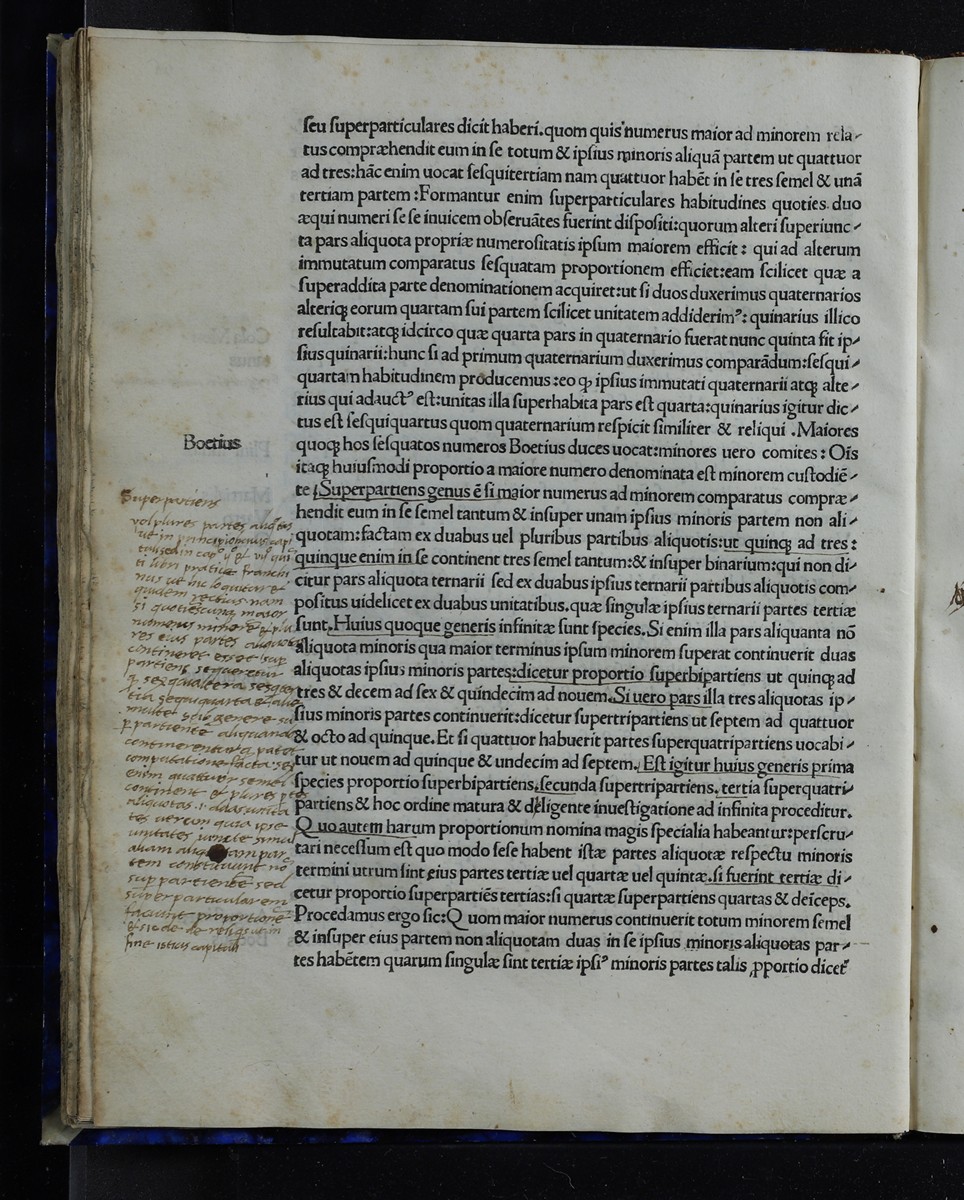 seu superparticulares dicit haberi.quom quis numerus maior ad minorem rela-
tus compræhendit eum in se totum & ipsius minoris aliquã partem ut quattuor
ad tres:hãc enim uocat sesquitertiam nam quattuor habẽt in se tres semel & unã
tertiam partem :Formantur enim superparticulares habitudines quoties duo
æqui numeri se se inuicem obseruãtes fuerint dispositi:quorum alteri superiunc-
ta pars aliquota propriæ numerositatis ipsum maiorem efficit: qui ad alterum
immutatum comparatus sesquatam proportionem efficiet:eam scilicet quæ a
superaddita parte denominationem acquiret:ut si duos duxerimus quaternarios
alteriqꝫ eorum quartam sui partem scilicet unitatem addiderimꝰ: quinarius illico
resultabit:atqꝫ idcirco quæ quarta pars in quaternario fuerat nunc quinta fit ip-
sius quinarii:hunc si ad primum quaternarium duxerimus comparãdum:sesqui-
quartam habitudinem producemus :eo ꝙ ipsius immutati quaternarii atqꝫ alte-
rius qui adauctꝰ est:unitas illa superhabita pars est quarta:quinarius igitur dic-
tus est sesquiquartus quom quaternarium respicit similiter & reliqui .Maiores
Boetius
quoqꝫ hos sesquatos numeros Boetius duces uocat:minores uero comites: Oĩs
itaqꝫ huiusmodi proportio a maiore numero denominata est minorem custodiẽ-
te .Superpartiens genus ẽ si maior numerus ad minorem comparatus compræ-
hendit eum in se semel tantum & insuper unam ipsius minoris partem non ali-
quotam:factam ex duabus uel pluribus partibus aliquotis:ut quinqꝫ ad tres:
quinque enim in se continent tres semel tantum:& insuper binarium:qui non di-
citur pars aliquota ternarii sed ex duabus ipsius ternarii partibus aliquotis com-
positus uidelicet ex duabus unitatibus.quæ singulæ ipsius ternarii partes tertiæ
sunt.Huius quoque generis infinitæ sunt species.Si enim illa pars aliquanta nõ
aliquota minoris qua maior terminus ipsum minorem superat continuerit duas
aliquotas ipsius minoris partes:dicetur proportio superbipartiens ut quinqꝫ ad
tres & decem ad sex & quindecim ad nouem.Si uero pars illa tres aliquotas ip-
sius minoris partes continuerit:dicetur supertripartiens ut septem ad quattuor
& octo ad quinque.Et si quattuor habuerit partes superquatripartiens uocabi-
tur ut nouem ad quinque & undecim ad septem. Est igitur huius generis prima
species proportio superbipartiens.secunda supertripartiens. tertia superquatri-
partiens & hoc ordine matura & diligente inuestigatione ad infinita proceditur.
Quo autem harum proportionum nomina magis specialia habeantur:perscru-
tari necessum est quo modo sese habent istæ partes aliquotæ respectu minoris
termini utrum sint eius partes tertiæ uel quartæ uel quintæ.si fuerint tertiæ di-
cetur proportio superpartiẽs tertias:si quartæ superpartiens quartas & deiceps.
Procedamus ergo sic:Quom maior numerus continuerit totum minorem semel
& insuper eius partem non aliquotam duas in se ipsius minoris aliquotas par-
tes habẽtem quarum singulæ sint tertiæ ipsiꝰ minoris partes talis ꝓportio dicet̃
Superpartiens
vel plures partes aliq̃tas
numerus minorẽ
res eius partes aliquotas
contineret esset sup
partiens sequeretur
ꝙ sexqualtera sesquiter
tia sequiquarta &
continerentur
computatione facta
enim quattuor semel
continent et plures
aliquotas
unitates simul
tem constituunt nõ
suppartientẽ sed
superparticularem
faciunt proportionẽ
et sic de reliquis
fine istius capituli